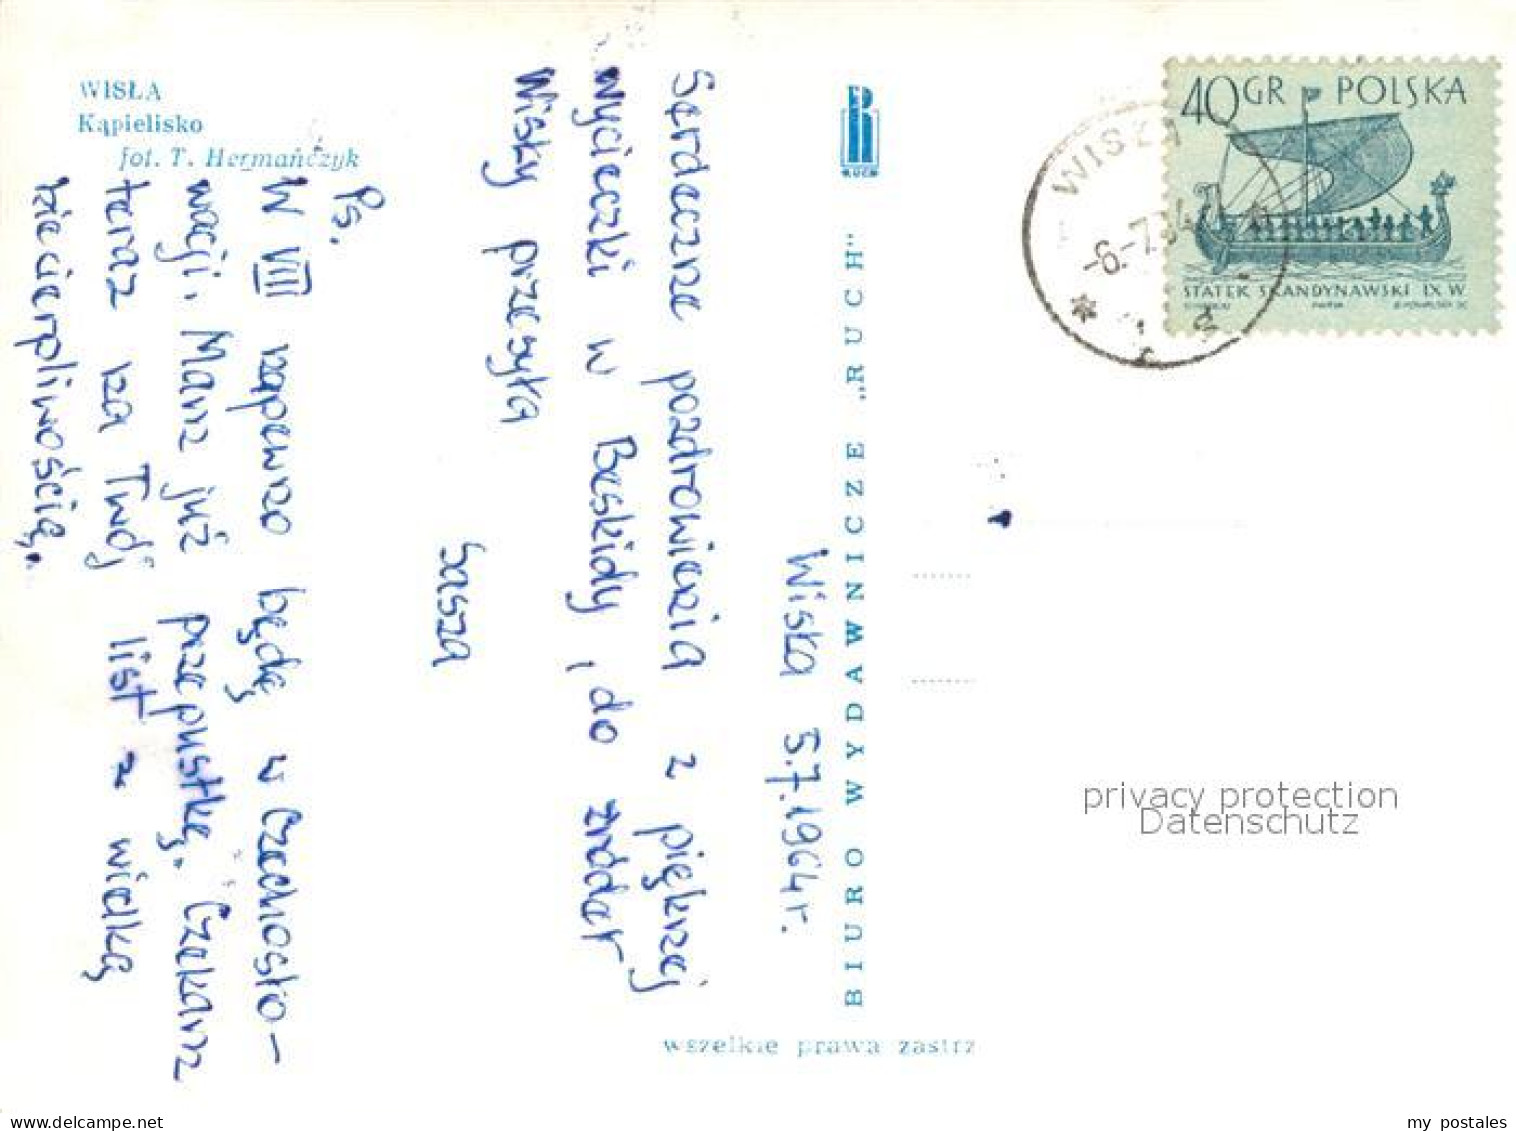 WISŁA
Kąpielisko
fot. T. Hermańczyk
Wisła 5.7.1964 r.
Serdeczne pozdrowienia z pięknej
wycieczki w Beskidy i do źródeł
Wisły przesyła
Sasza
Ps.
W VIII zapewne będę w Czechosło-
wacji. Mam już przepustkę. Czekam
teraz na Twój list z wielką
niecierpliwością.
BIURO WYDAWNICZE „RUCH"
RUCH
wszelkie prawa zastrz
40 GR POLSKA
STATEK SKANDYNAWSKI IX W
WISŁA
-6.-7.64
privacy protection
Datenschutz
www.delcampe.net
my_postales